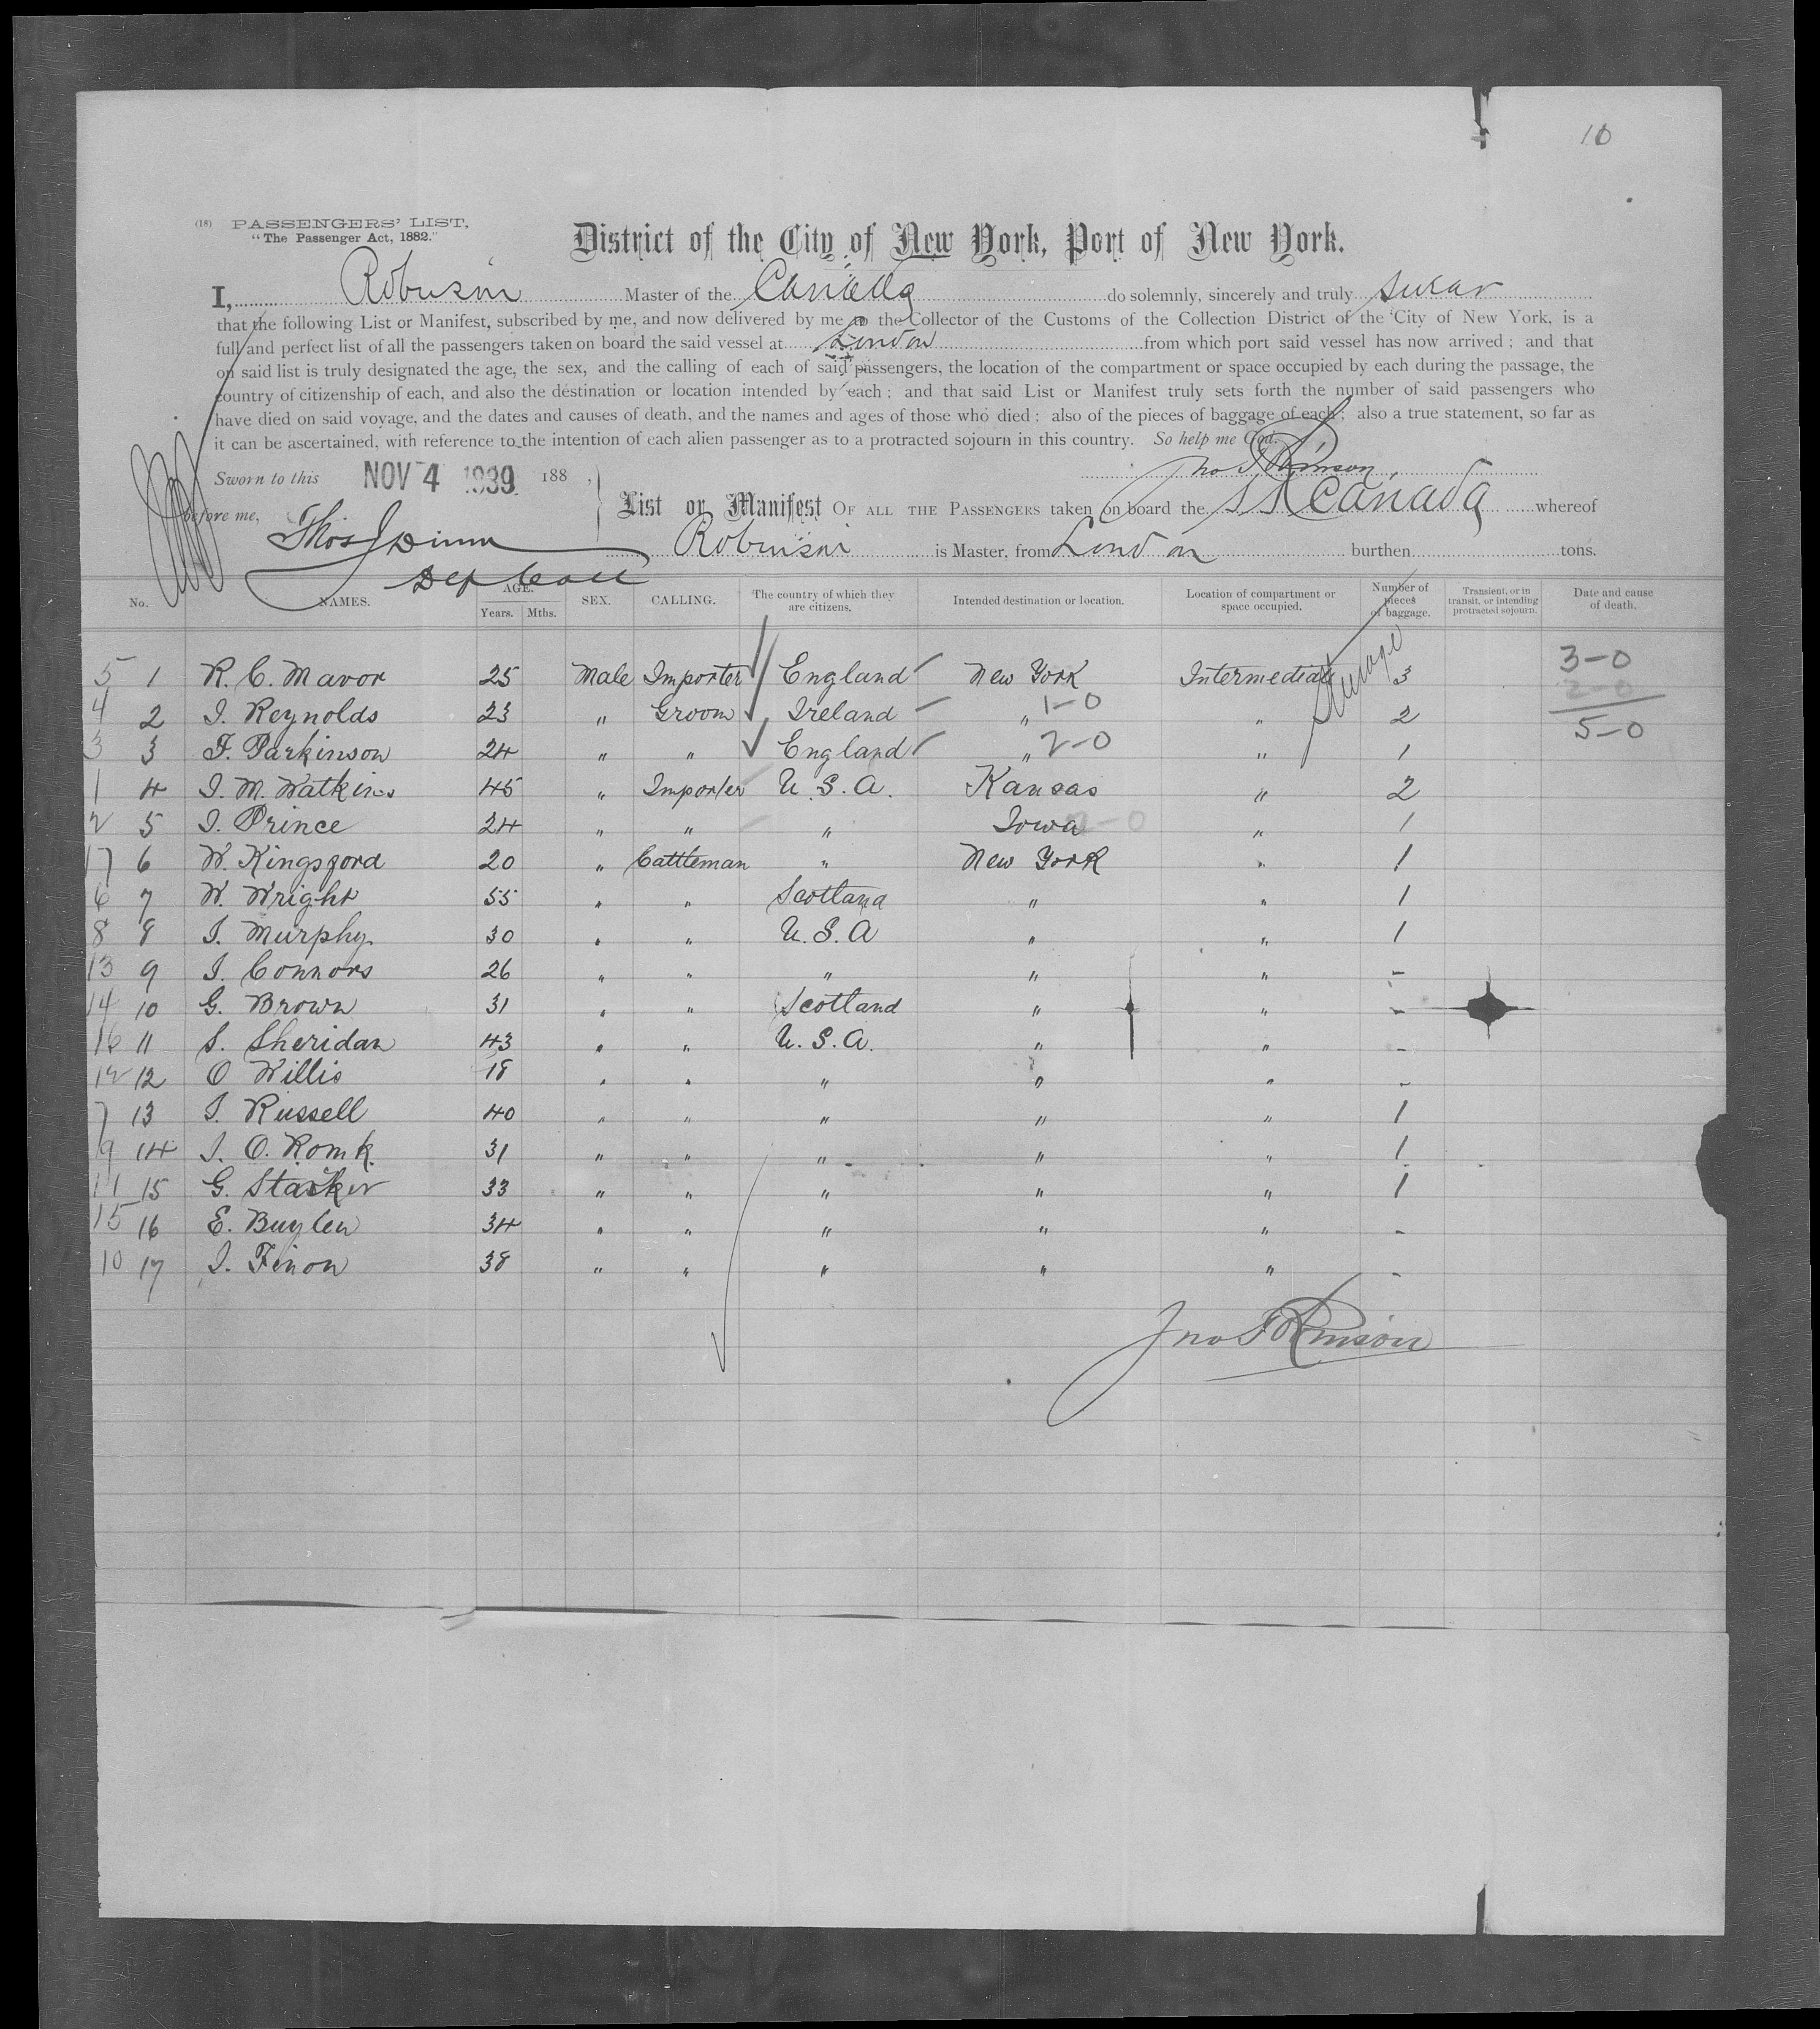 10
(18) PASSENGERS' LIST,
"The Passenger Act, 1882."
District of the City of New York, Port of New York.
I, Robinson Master of the Canada do solemnly, sincerely and truly swear
that the following List or Manifest, subscribed by me, and now delivered by me to the Collector of the Customs of the Collection District of the City of New York, is a
full and perfect list of all the passengers taken on board the said vessel at London from which port said vessel has now arrived; and that
on said list is truly designated the age, the sex, and the calling of each of said passengers, the location of the compartment or space occupied by each during the passage, the
country of citizenship of each, and also the destination or location intended by each; and that said List or Manifest truly sets forth the number of said passengers who
have died on said voyage, and the dates and causes of death, and the names and ages of those who died; also of the pieces of baggage of each; also a true statement, so far as
it can be ascertained, with reference to the intention of each alien passenger as to a protracted sojourn in this country. So help me God.
Sworn to this NOV 4 1889 188 , Jno F Robinson
before me, List or Manifest OF ALL THE PASSENGERS taken on board the SS Canada whereof
Thos J Dunn Robinson is Master, from London burthen tons.
Dep Coll
No. NAMES. AGE. Years. Mths. SEX. CALLING. The country of which they are citizens. Intended destination or location. Location of compartment or space occupied. Number of pieces of baggage. Transient, or in transit, or intending protracted sojourn. Date and cause of death.
Steerage
5 1 R. C. Mavor 25 Male Importer England New York Intermediate 3 3-0
4 2 J. Reynolds 23 " Groom Ireland " 1-0 " 2 2-0
3 3 F. Parkinson 24 " " England " 2-0 " 1 5-0
1 4 J. M. Watkins 45 " Importer U.S.A. Kansas " 2
2 5 J. Prince 24 " " " Iowa 2-0 " 1
17 6 W. Kingsford 20 " Cattleman " New York " 1
6 7 W. Wright 55 " " Scotland " " 1
8 8 J. Murphy 30 " " U.S.A " " 1
13 9 J. Connors 26 " " " " " -
14 10 G. Brown 31 " " Scotland " " -
16 11 S. Sheridan 43 " " U.S.A. " " -
12 12 O Willis 18 " " " " " -
7 13 J. Russell 40 " " " " " 1
9 14 J. O. Romk. 31 " " " " " 1
11 15 G. Starker 33 " " " " " 1
15 16 E. Buylen 34 " " " " " -
10 17 J. Finon 38 " " " " " -
Jno F Robinson